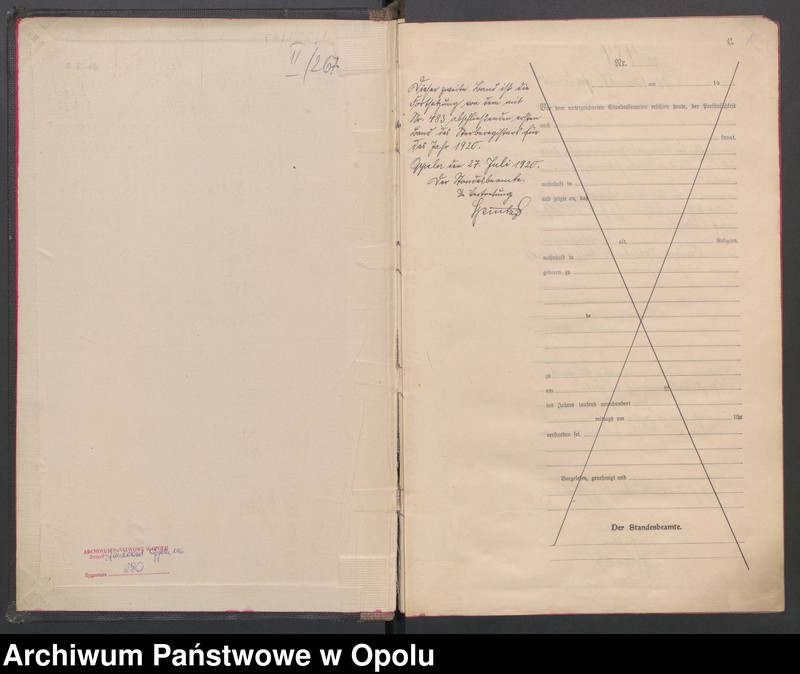 II/267
ARCHIWUM PAŃSTWOWE W OPOLU
Zespół Standesamt Oppeln
Sygnatura 280
Dieser zweite Band ist die
Fortsetzung von dem mit
Nr. 483 abschließenden ersten
Band des Sterberegisters für
das Jahr 1920.
Oppeln den 27. Juli 1920.
Der Standesbeamte.
In Vertretung
C.
Nr.
am 19
Vor dem unterzeichneten Standesbeamten erschien heute, der Persönlichkeit
nach
kannt,
wohnhaft in
und zeigte an, daß
alt, Religion,
wohnhaft in
geboren zu
zu
am
des Jahres tausend neunhundert
mittags um Uhr
verstorben sei.
Vorgelesen, genehmigt und
Der Standesbeamte.
Archiwum Państwowe w Opolu